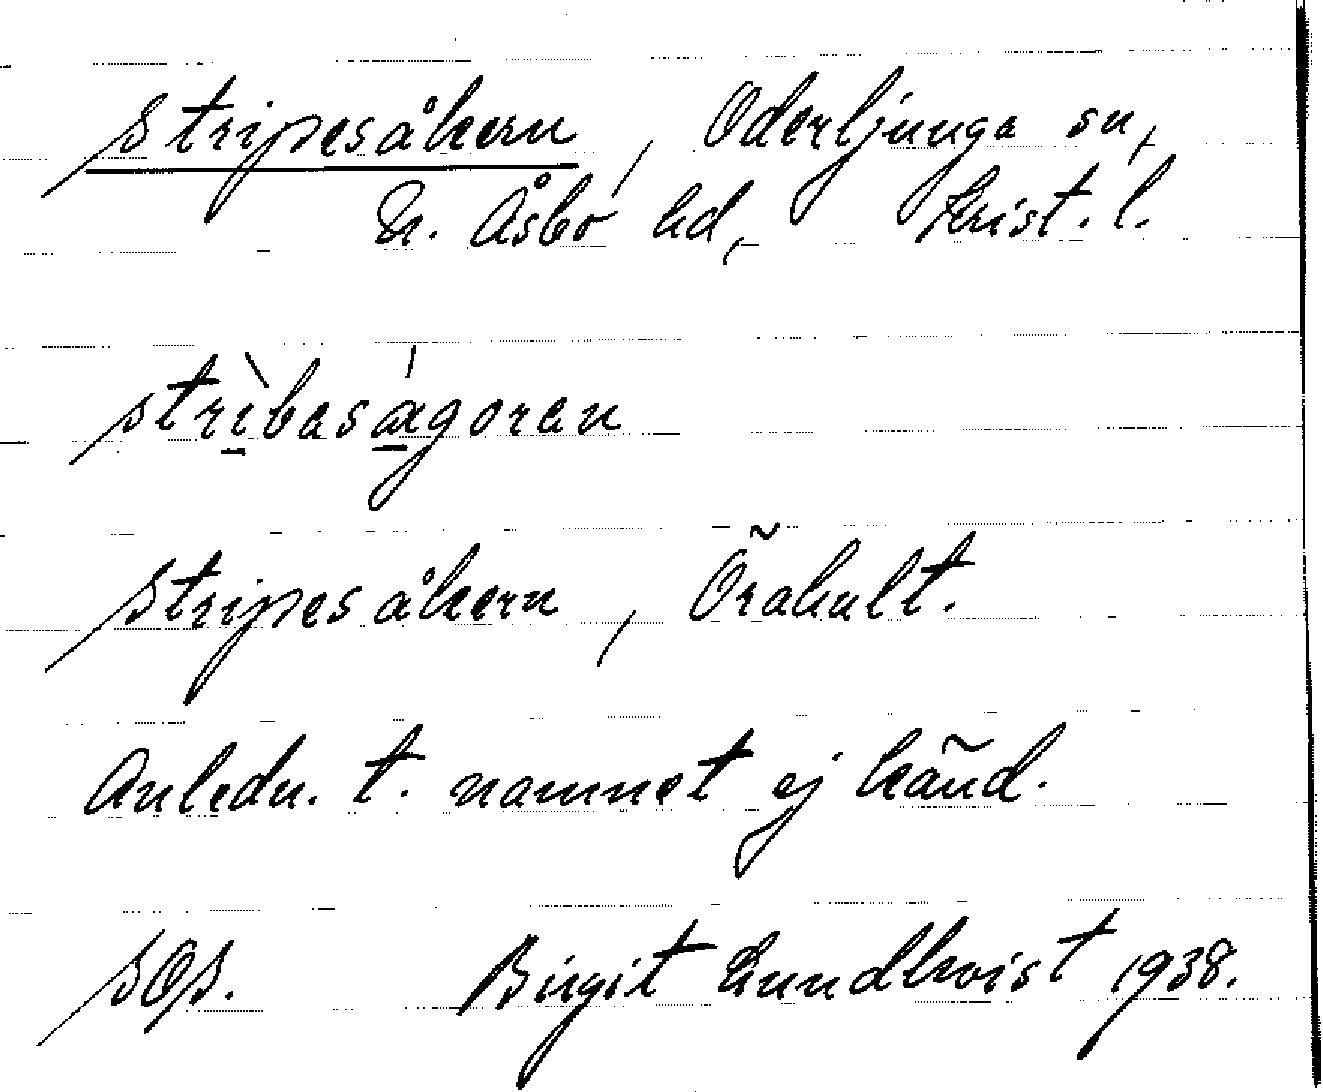 Stripesåkern, Oderljunga sn,
N. Åsbo hd, Krist. l.
strìbaságoren
Stripesåkern, Örahult.
Anledn. t. namnet ej känd.
SOS. Birgit Lundkvist 1938.